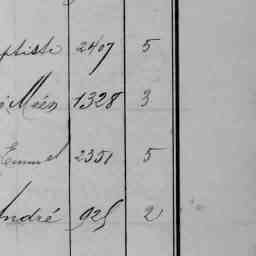 ptiste 2407 5
Mién 1328 3
Emmel 2351 5
André 925 2